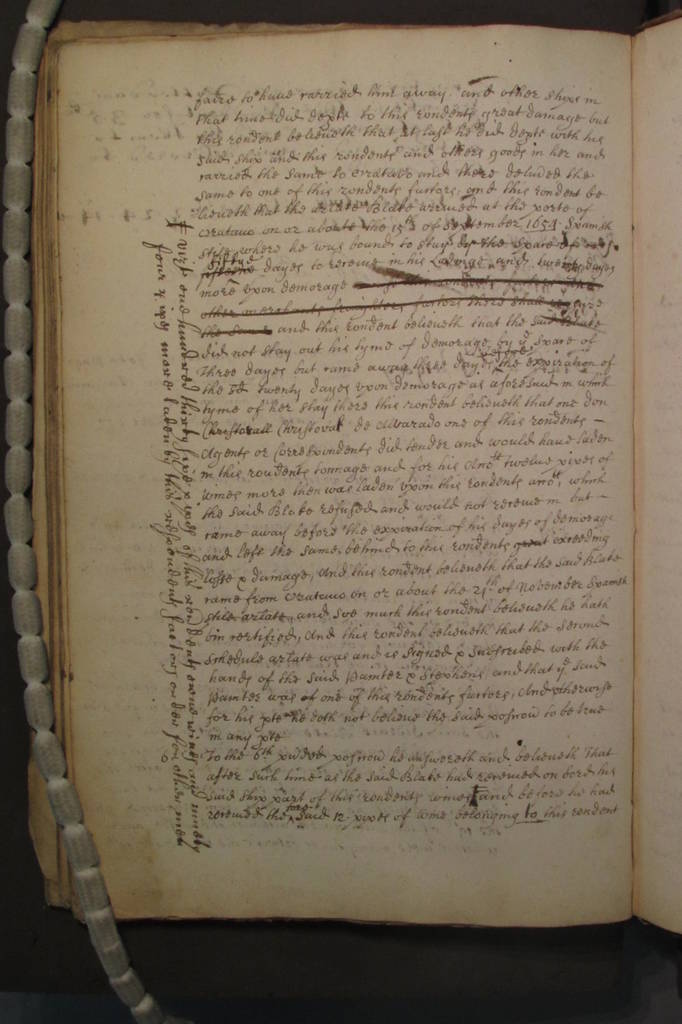 faire to have carried him away and other shipps in
that time did depte to this rondents great damage but
this rondent beleeveth that at last he did depte with his
said ship and this rondents and others goods in her and
carried the same to and there the
same to one of this rondents factors, and this rondent be
leeveth that the arlate Blake arrived at the porte of
on or aboute the 15th of September 1654 Spanish
stile where he was bound to stay by the space of
fiftye dayes to receive in his Ladinge and twentie dayes
more upon demorage
other merchants freighters factors there shall
the same and this rondent beleeveth that the said Blake
did not stay out his tyme of demorage by ye space of
Three dayes but came away three dayes before the expiration of
the sd twenty dayes upon demorage as aforesaid in which
tyme of her stay there this rondent beleeveth that one don
Christovall Christoval de Alvarado one of this rondents –
Agents or Correspondents did tender and would have laden
in this rondents tonnage and for his Accott twelve pipes of
wines more then was laden upon this rondents accott which
the said Blake refused and would not receive in but –
came away before the expiration of his dayes of demorage
and left the same behind to this rondents great exceeding
losse & damage, And this rondent beleeveth that the said Blake
came from on or about the 21th of November Spanish
stile arlate, and soe much this rondent beleeveth he hath
bin certified, And this rondent beleeveth that the second
schedule arlate was and is signed & subscribed with the
hands of the said Painter & Stephens, and that ye said
Painter was of one of this rondents factors, And otherwise
for his pte he doth not beleeve the said posicion to be true
in any pte
To the 6th posicion he answereth and beleeveth That
after such time as the said Blake had received on bord his
said ship part of this rondents wines ‡ and before he had
received the fores said 12 pipes of wine belonging to this rondent
‡ vizt one hundred thirty sixe pipes of this rondents owne wines and ninety
four pipes more laden by this respondents factors order for other men